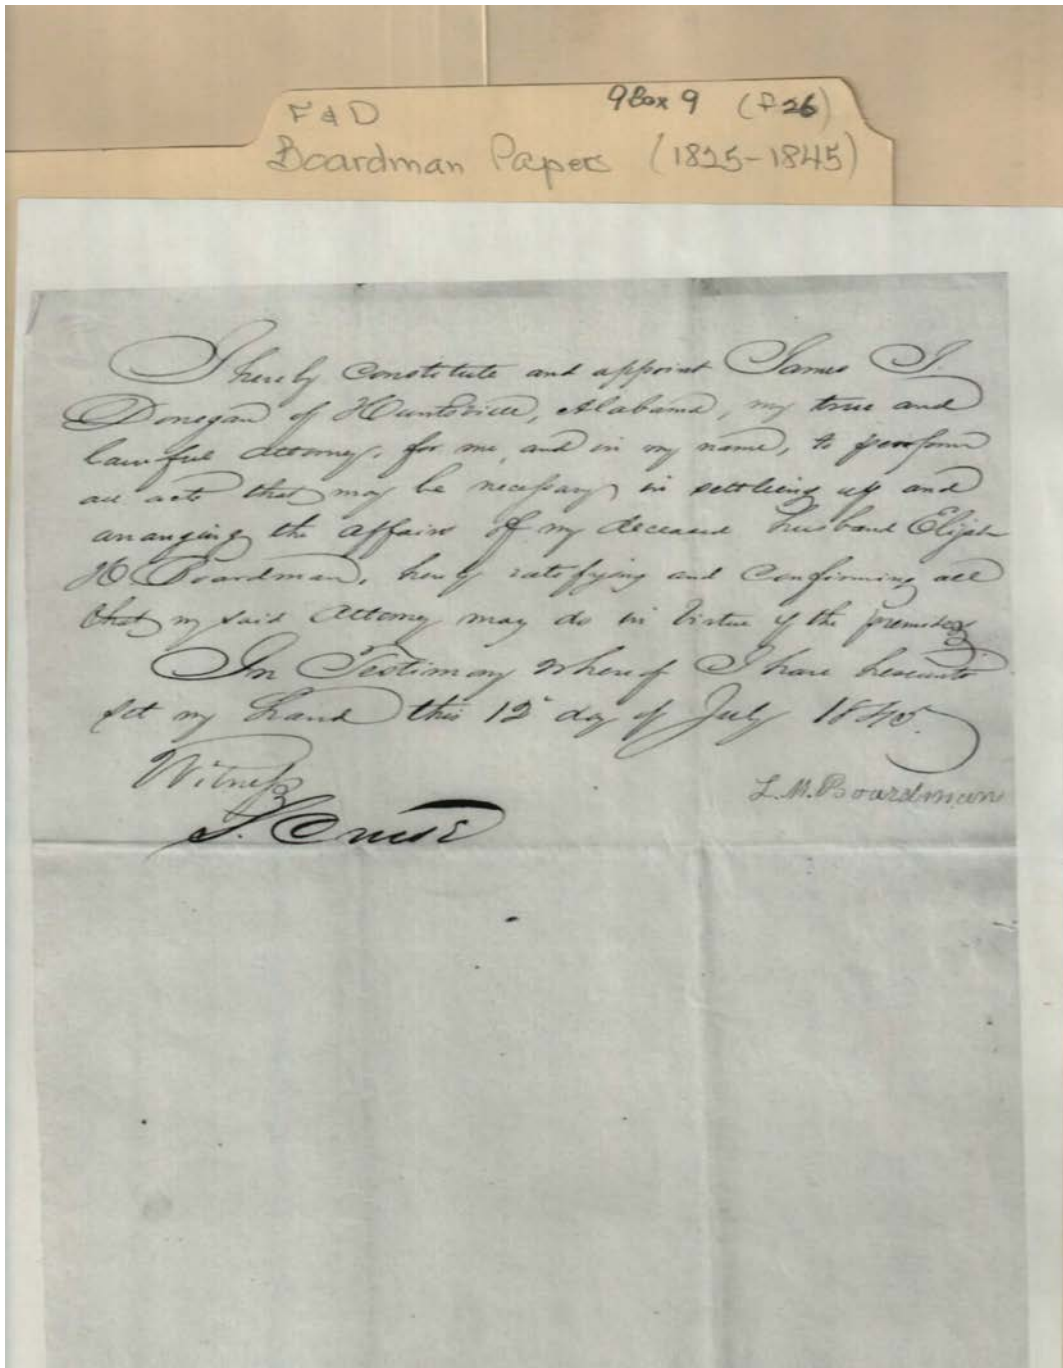 F & D
9 Box 9 (f 26)
Boardman Papers (1825-1845)
I hereby Constitute and appoint James J.
Donegan of Huntsville, Alabama, my true and
lawful attorney, for me, and in my name, to perform
all acts that may be necessary in settling up and
arranging the affairs of my deceased husband Elijah
H Boardman, hereby ratifying and Confirming all
that my said Attorney may do in virtue of the premises.
In Testimony whereof I have hereunto
set my hand this 12 day of July 1845.
Witness
L. M. Boardman
S. Cruse